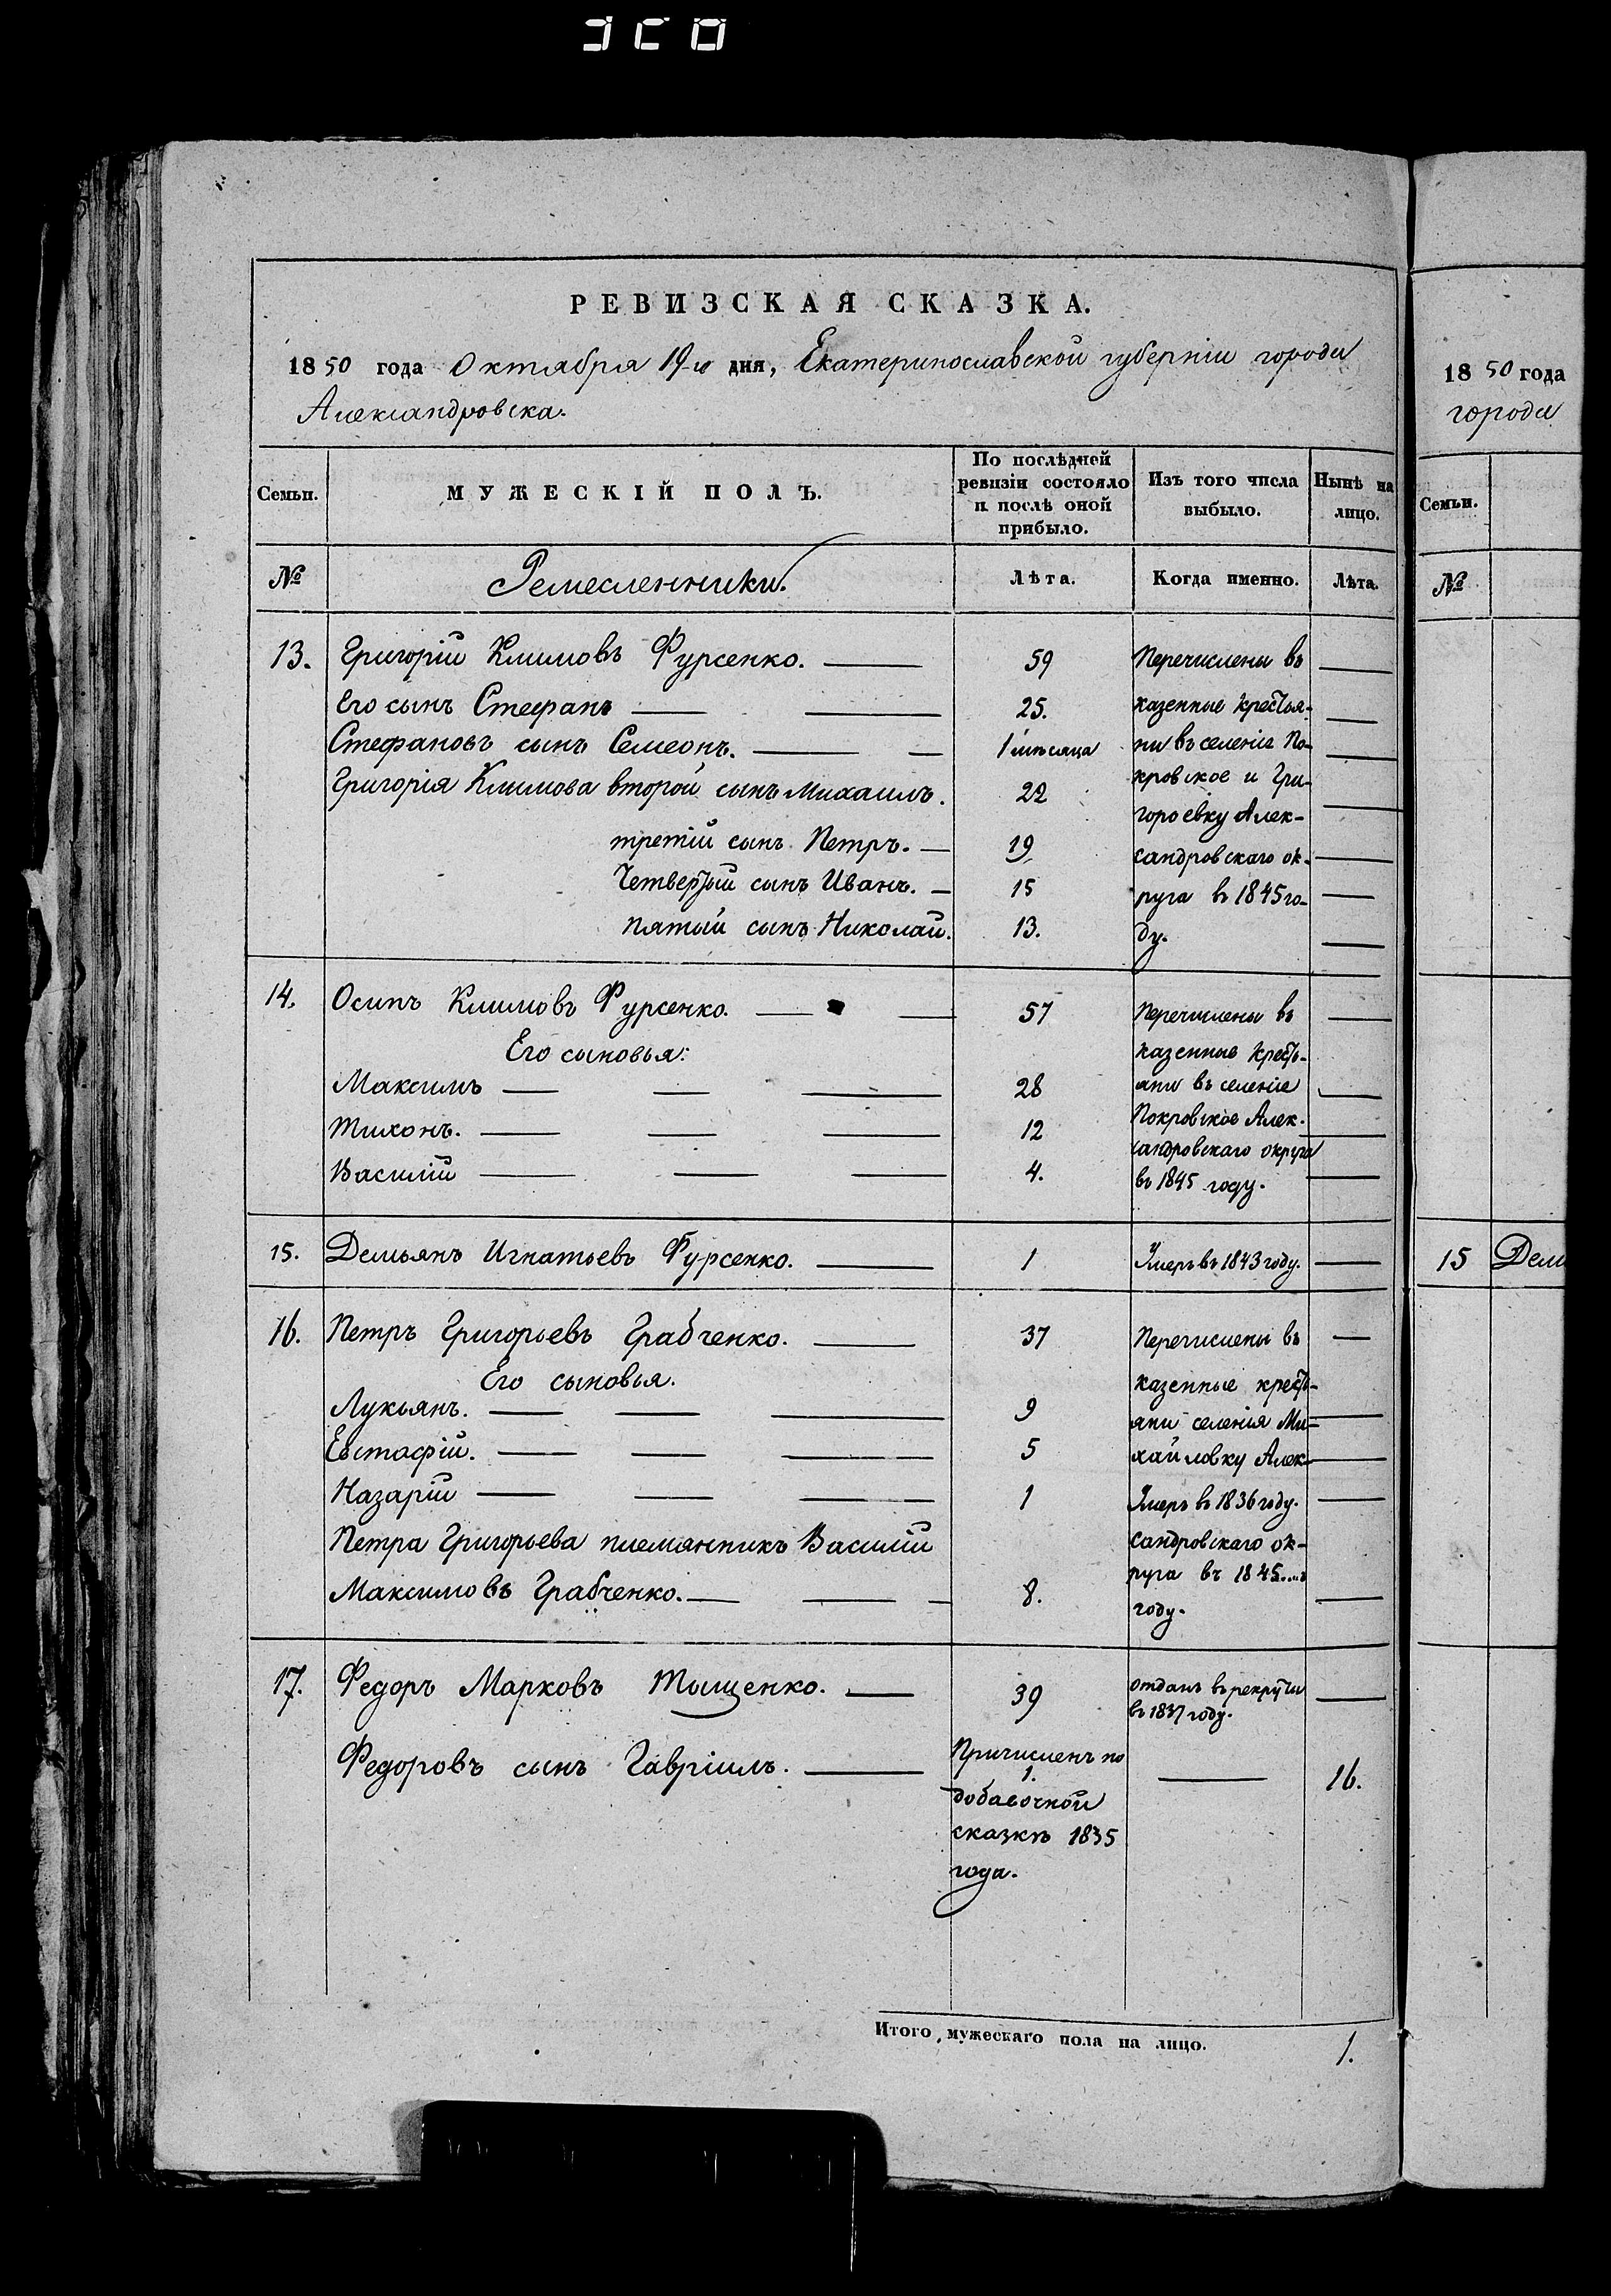 РЕВИЗСКАЯ СКАЗКА.
1850 года Октября 19-го дня, Екатеринославской губерніи города
Александровска.
Семьи. МУЖЕСКІЙ ПОЛЪ. По послѣдней ревизіи состояло и послѣ оной прибыло. Изъ того числа выбыло. Нынѣ на лицо.
№ Ремесленники. Лѣта. Когда именно. Лѣта.
13. Григорій Климовъ Фурсенко. 59 Перечислены въ
Его сынъ Стефанъ 25. казенные крестья-
Стефановъ сынъ Семеонъ. 1 мѣсяца ни въ селеніе По-
Григорія Климова второй сынъ Михаилъ. 22 кровское и Гри-
горовку Алек-
третій сынъ Петръ. 19 сандровскаго ок-
Четвертый сынъ Иванъ. 15 руга въ 1845 го-
пятый сынъ Николай. 13. ду.
14. Осипъ Климовъ Фурсенко. 57 Перечислены въ
Его сыновья: казенные кресть-
Максимъ 28 яни въ селеніе
Тихонъ. 12 Покровское Алек-
сандровскаго округа
Василій 4. въ 1845 году.
15. Демьянъ Игнатьевъ Фурсенко. 1 Умеръ въ 1843 году.
16. Петръ Григорьевъ Грабченко. 37 Перечислены въ
Его сыновья. казенные кресть-
Лукьянъ. 9 яни селенія Ми-
Евстафій. 5 хайловку Алек-
Назарій 1 Умеръ въ 1836 году.
Петра Григорьева племянникъ Василій сандровскаго ок-
руга въ 1845
Максимовъ Грабченко. 8. году.
17. Федоръ Марковъ Тыщенко. 39 отданъ въ рекруты
въ 1837 году.
Федоровъ сынъ Гавріилъ. Причисленъ по 16.
1.
добавочной
сказкѣ 1835
года.
Итого мужескаго пола на лицо. 1.
1850 года
города
Семьи.
№
15 Дем